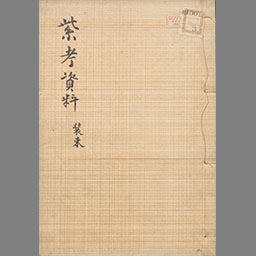 紫考資料
装束